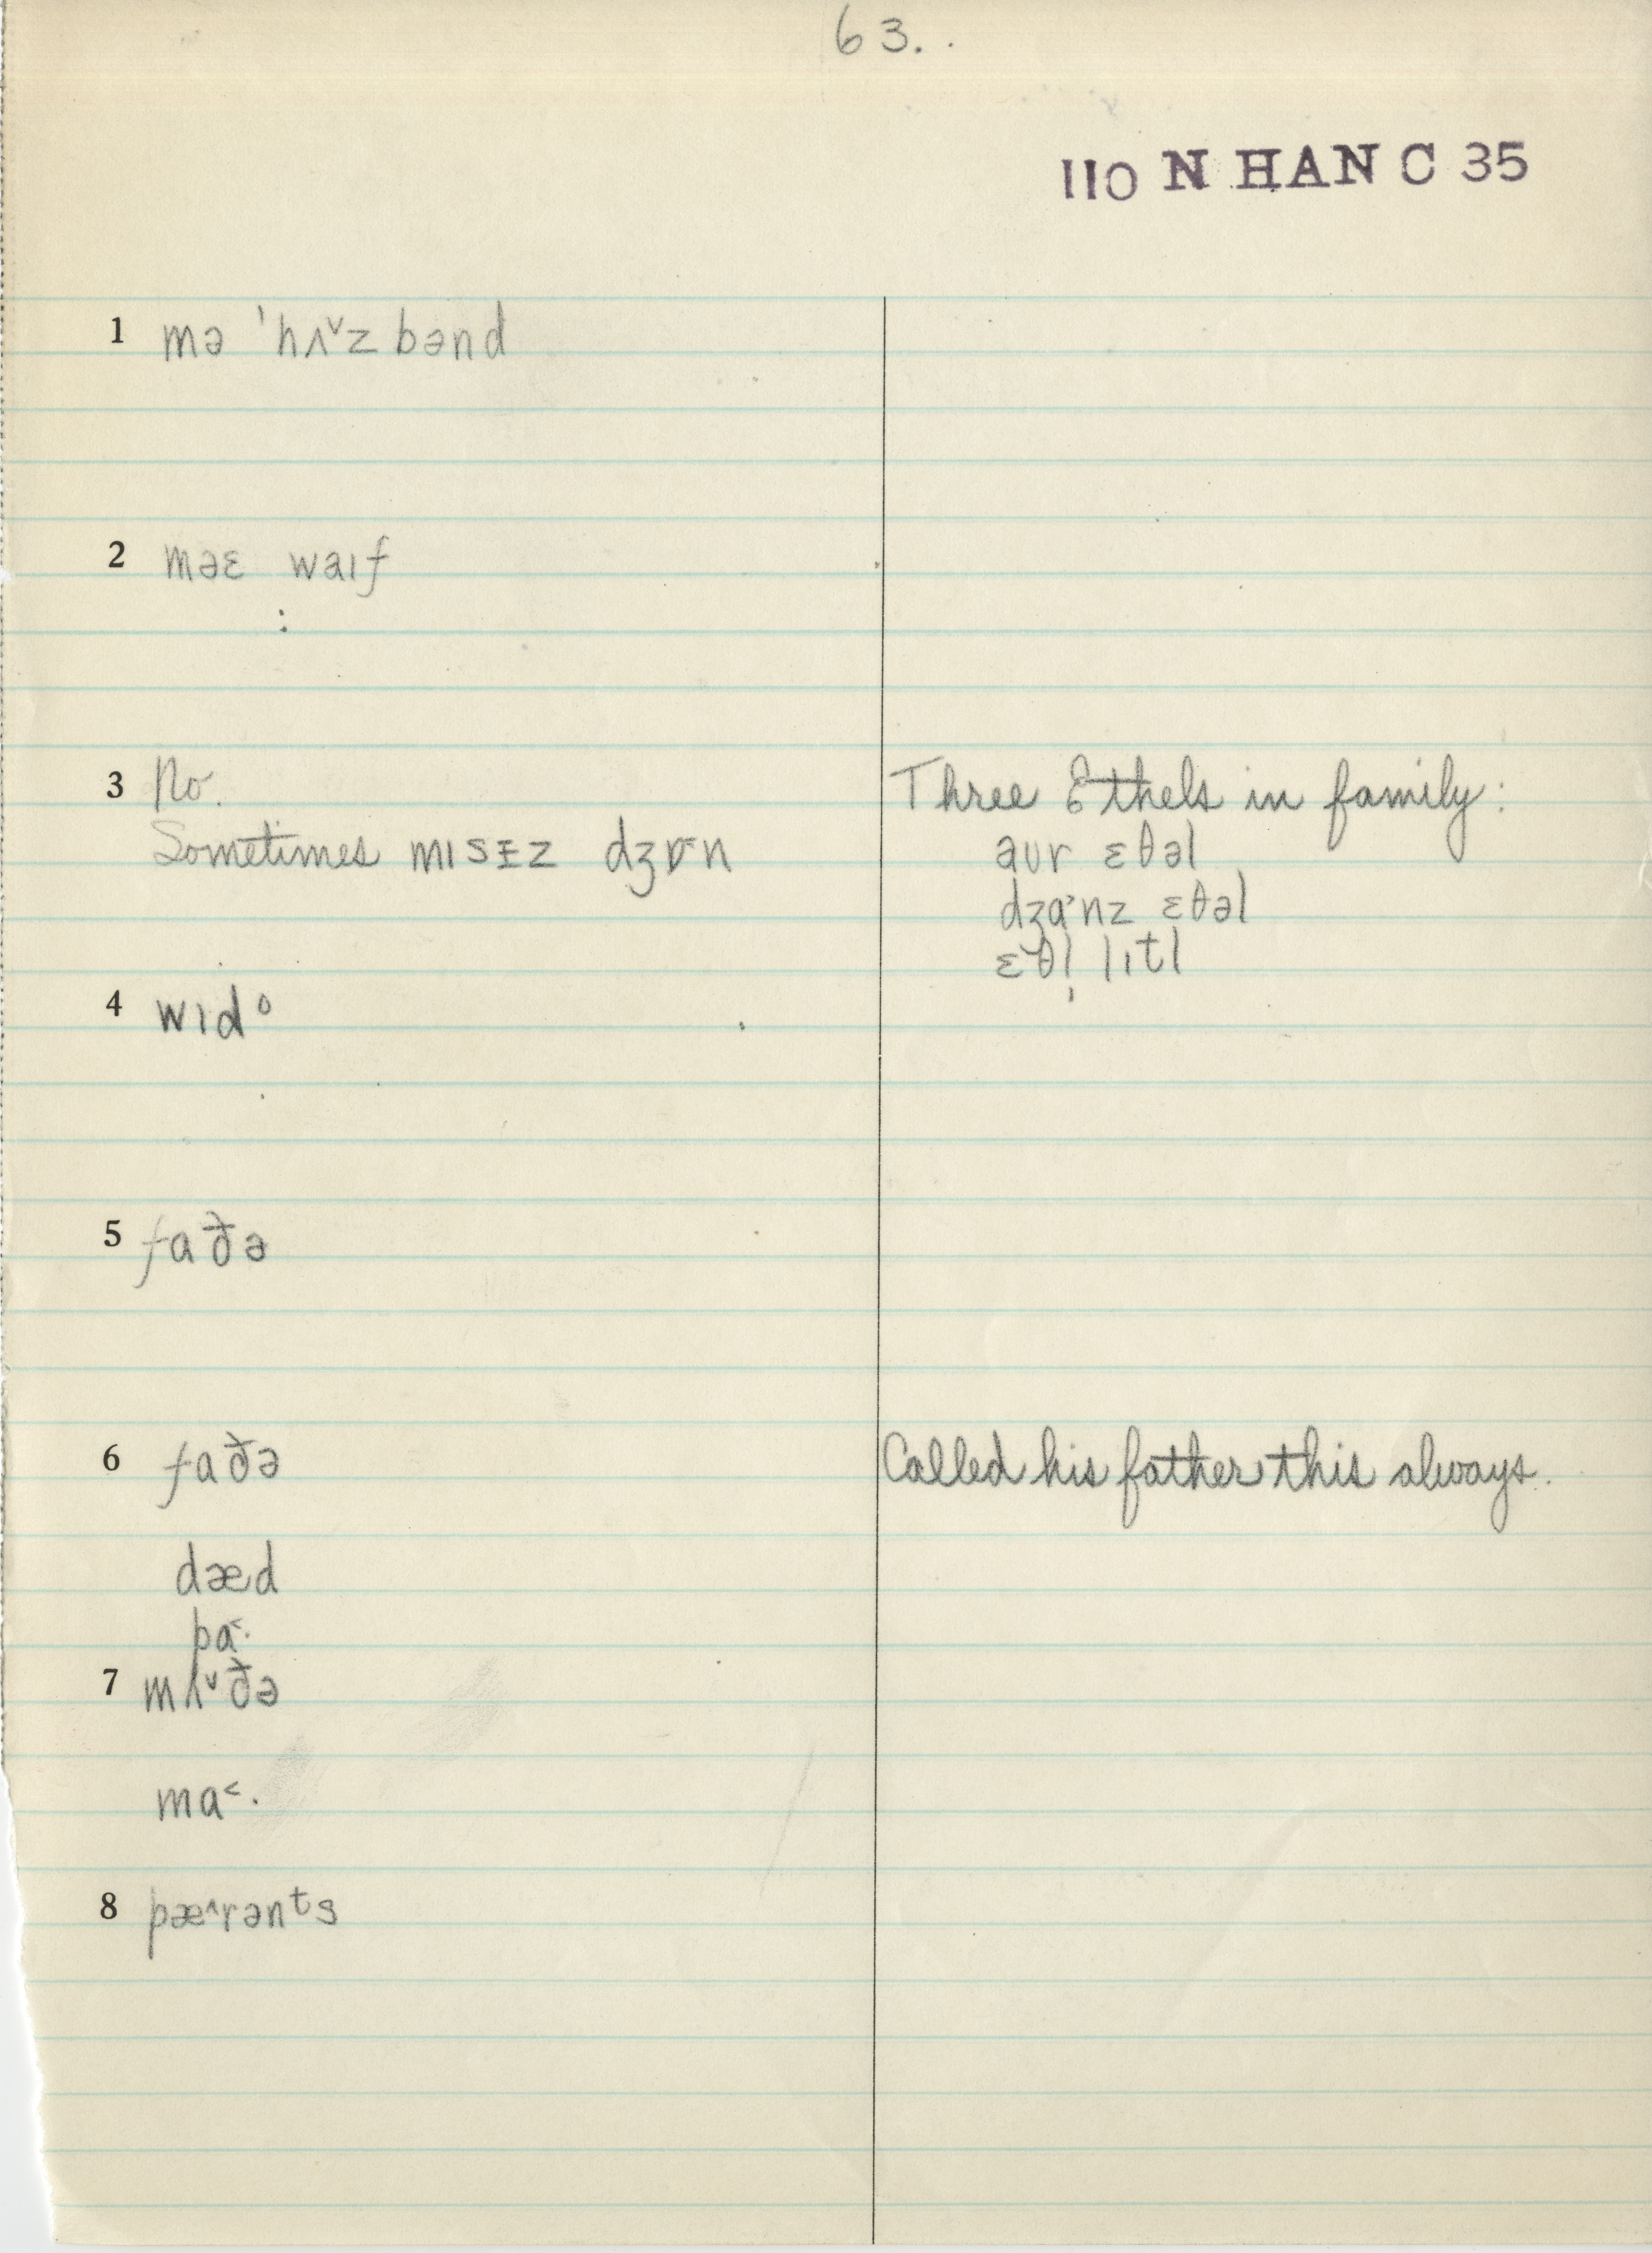 63.
110 N HAN C 35
1 mə ˈhʌ˅zbənd
2 məɛ waɪf
3 No.
Sometimes mɪsɪ̵z dʒɒn
Three Ethels in family:
aʊr ɛθəl
dʒɑ˃nz ɛθəl
ɛθl̩ lɪtl
4 wɪdᵒ
5 faðə
6 faðə
Called his father this always.
dæd
pɑ˂·
7 mʌ˅ðə
mɑ˂·
8 pæ˄rənᵗs